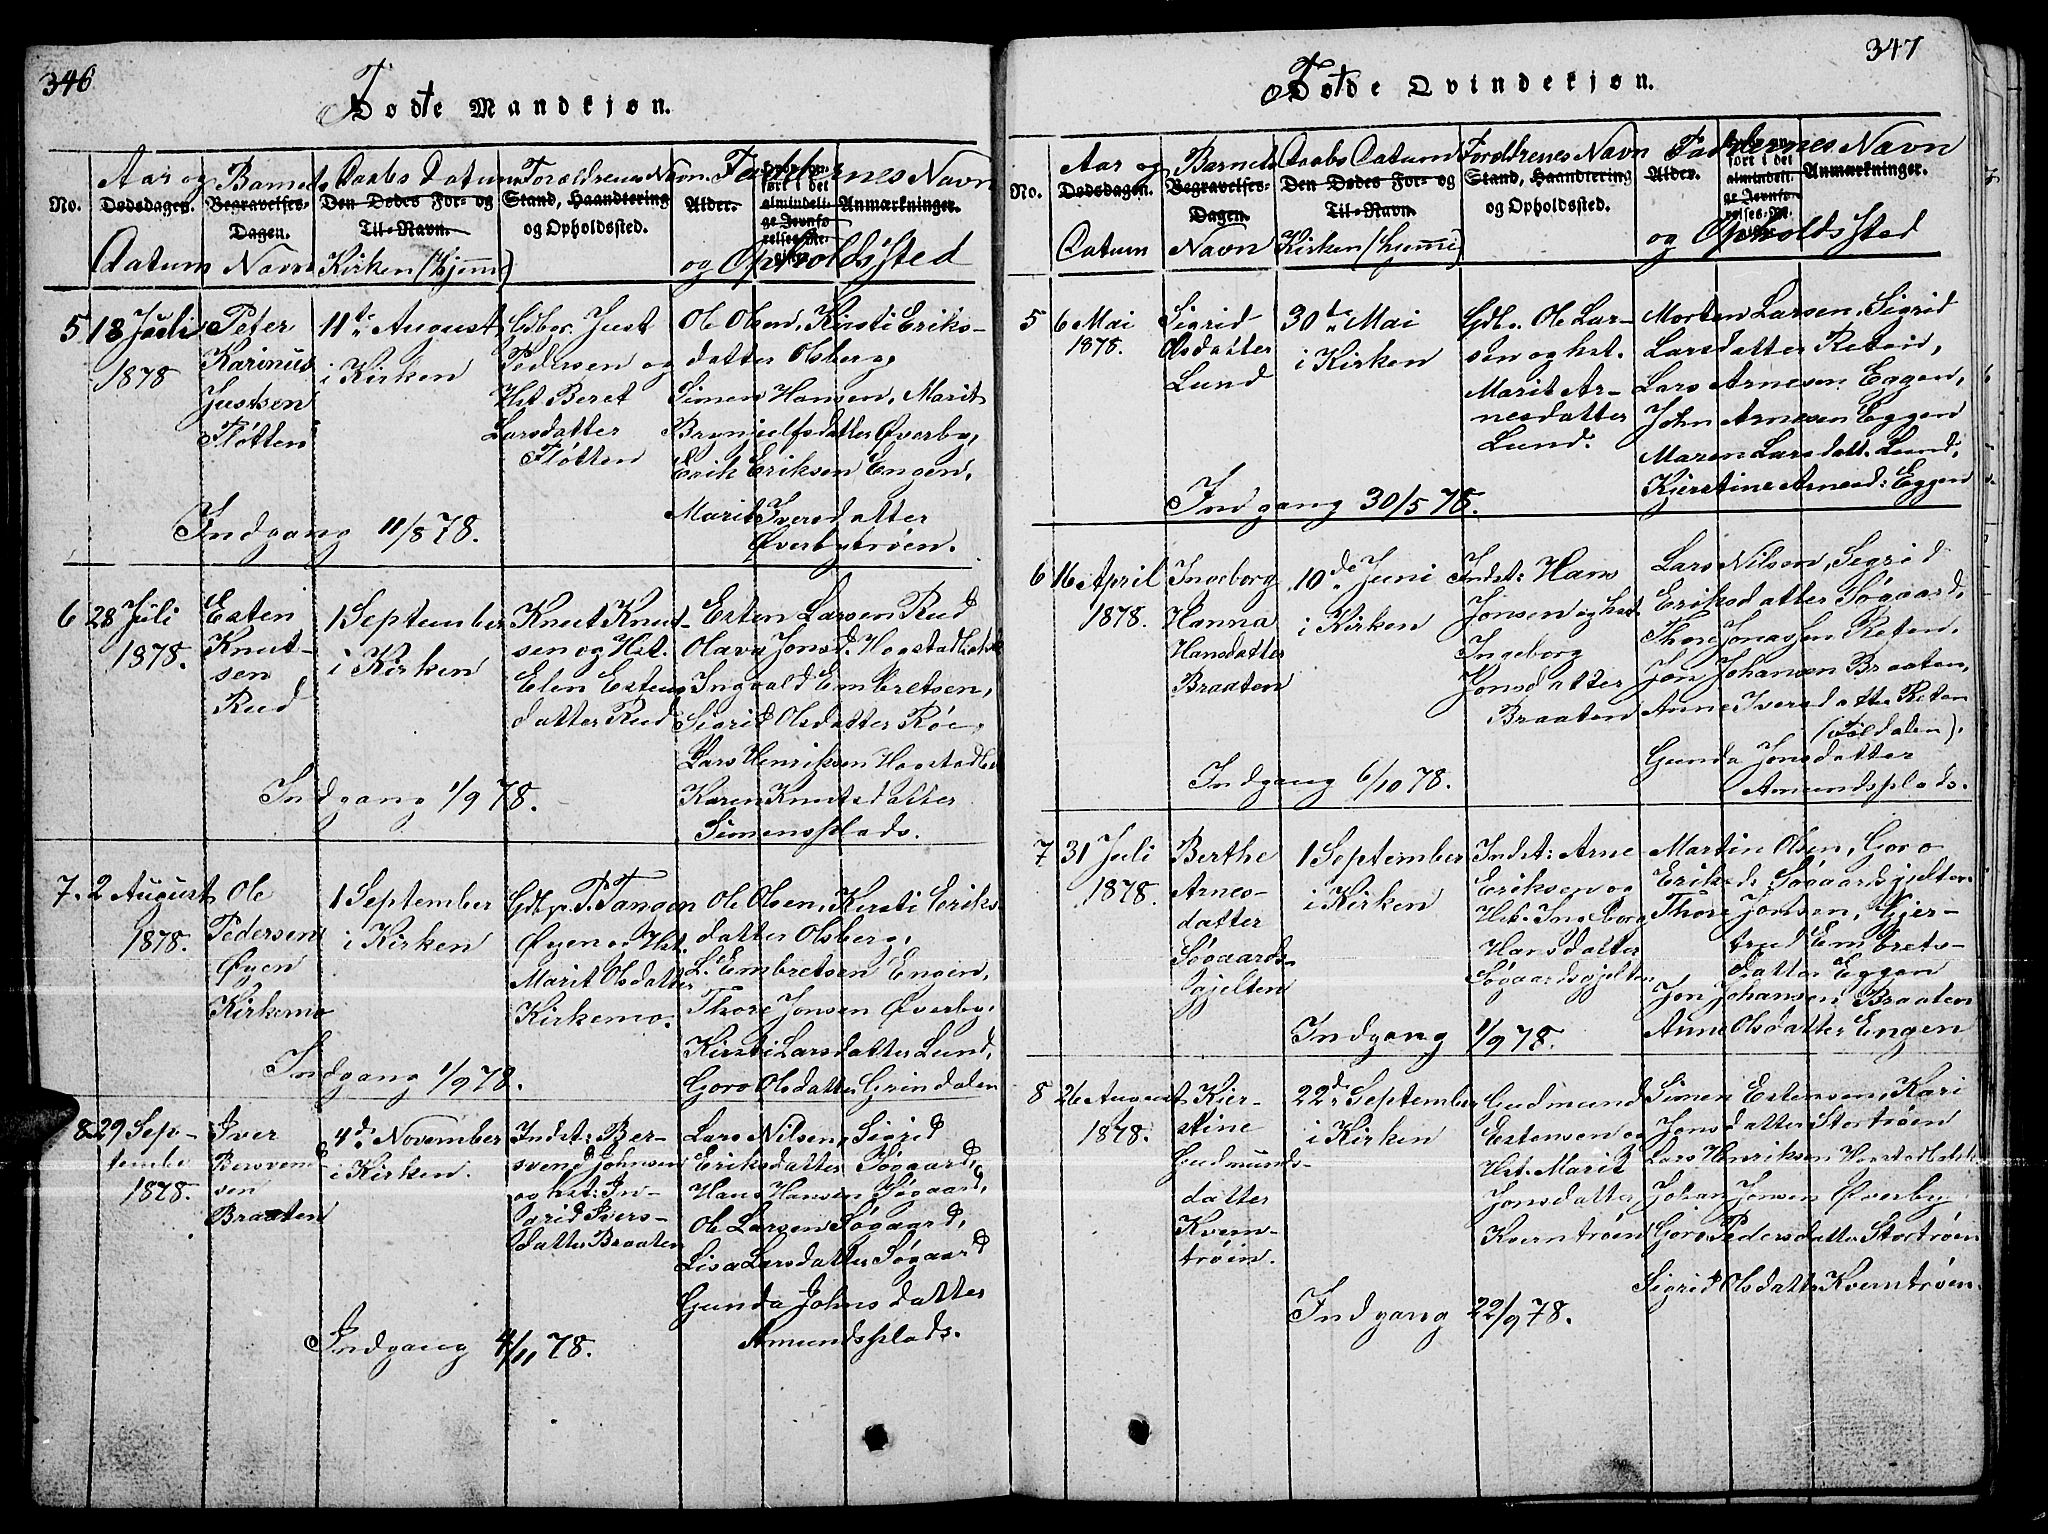 346
Fodte Mandkjøn.
No.
Aar og
Dødsdagen.
Datum
Barnets
Begravelses-
Dagen.
Navn
Daabs Datum
Den Dødes For- og
Til-Navn.
Kirken (hjemme)
Forældrenes Navn
Stand, Haandtering
og Opholdssted.
Faddernes Navn
Alder.
Anmærkninger.
og Opholdssted
5 18 Juli
1878
Peter
Karinus
Justsen
Fløtten
11te August
i Kirken
Gdbr. Just
Pedersen og
Hst Beret
Larsdatter
Fløtten
Ole Olsen, Kirsti Eriks-
datter Olsberg,
Simen Hansen, Marit
Brynjulfsdatter Øverby,
Erik Eriksen Engen,
Marit Iversdatter
Øverbytrøen.
Indgang 11/8 78.
6 28 Juli
1878.
Esten
Knut-
sen
Rud
1 September
i Kirken
Knut Knut-
sen og Hst.
Elen Estens-
datter Rud
Esten Larsen Rud
Olava Jonsd.
Ingvald Embretsen,
Sigrid Olsdatter Røe,
Lars Henriksen
Karen Knutsdatter
Simensplads.
Indgang 1/9 78.
7. 2 August
1878.
Ole
Pedersen
Øyen
Kirkemo
1 September
i Kirken
Gdbr. P. Tangen
Øyen og Hst.
Marit Olsdatter
Kirkemo.
Ole Olsen, Kersti Eriks-
datter Olsberg,
L. Embretsen Engen,
Thore Jonsen Øverby,
Kirsti Larsdatter Lund,
Goro Olsdatter Grindalen
Indgang 1/9 78.
8. 29 Sep-
tember
1878.
Iver
Bersvend-
sen
Braaten
4de November
i Kirken.
Indst: Ber-
svend Johnsen
og hst: In-
grid Ivers-
datter Braaten
Lars Nilsen, Sigrid
Eriksdatter Søgaard,
Hans Hansen Søgaard,
Ole Larsen Søgaard,
Lisa Larsdatter Søgaard
Gunda Johnsdatter
Amundsplads.
Indgang 4/11 78.
347
Fødte Qvindekjøn.
No.
Aar og
Dødsdagen.
Datum
Barnets
Begravelses-
Dagen.
Navn
Daabs Datum
Den Dødes For- og
Til-Navn.
Kirken (hjemme)
Forældrenes Navn
Stand, Haandtering
og Opholdssted.
Faddernes Navn
Alder.
Anmærkninger.
og Opholdssted
5 6 Mai
1878.
Sigrid
Olsdatter
Lund
30te Mai
i Kirken
Gdb. Ole Lar-
sen og hst.
Marit Ar-
nesdatter
Lund.
Morten Larsen, Sigrid
Larsdatter Reten,
Lars Arnesen Eggen,
John Arnesen Eggen
Maren Larsdatt. Lund,
Kjerstine Arnesd: Eggen
Indgang 30/5 78.
6 16 April
1878.
Ingeborg
Hanna
Hansdatter
Braaten
10de Juni
i Kirken
Indst: Hans
Jonsen og hst
Ingeborg
Jonsdatter
Braaten
Lars Nilsen, Segrid
Eriksdatter Søgaard,
Thore Jonassen Reten,
Jon Johansen Braaten,
Anne Iversdatter Reten
(Foldalen).
Gunda Jonsdatter
Amundsplads.
Indgang 6/10 78.
7 31 Juli
1878.
Berthe
Arnes-
datter
Søgaards-
gjelten
1 September
i Kirken
Indst: Arne
Eriksen og
Hst. Ingeborg
Hansdatter
Søgaardsgjelten
Martin Olsen, Goro
Eriksd: Søgaardsgjelten
Thore Jonsen, Gjer-
trud Embrets-
datter Eggen
Jon Johansen Braaten
Anne Olsdatter Engen
Indgang 1/9 78.
8 26 August
1878.
Kier-
stine
Gudmunds-
datter
Kvern-
trøin.
22de September
i Kirken
Gudmund
Estensen og
Hst. Marit
Jonsdatter
Kverntrøen
Simen Estensen, Kari
Jonsdatter Stortrøen
Lars Henriksen
Johan Jonsen Øverby
Goro Pedersdatter Stortrøen
Sigrid Olsdatter Kverntrøen.
Indgang 22/9 78.